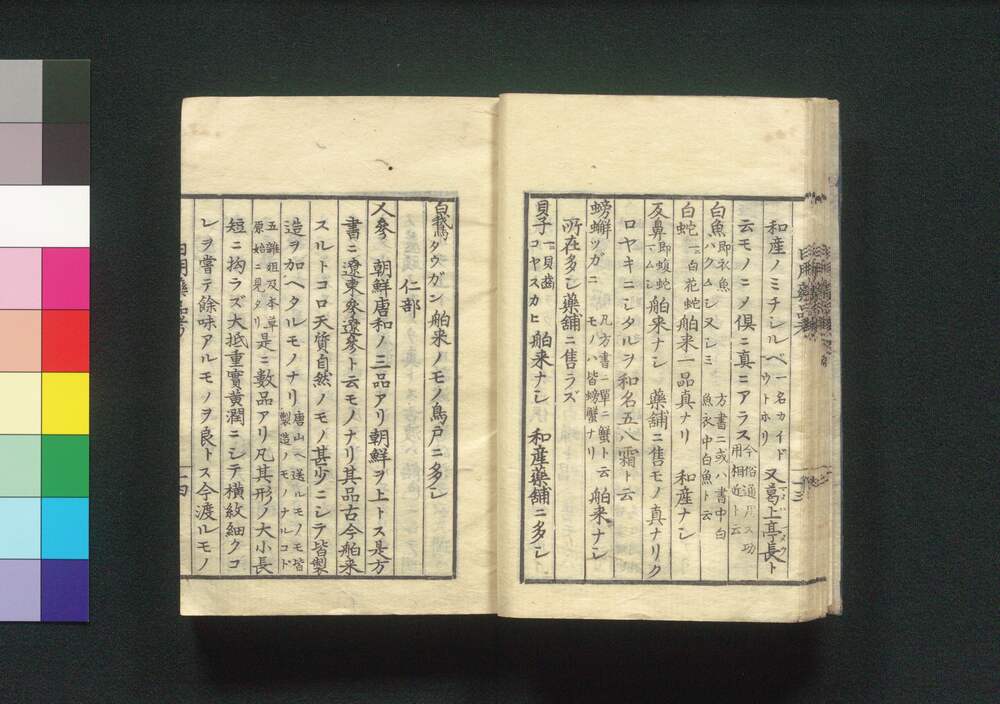 和産ノミチシルベ 一名カイド ウトホリ 又葛上亭長ト
云モノニメ倶ニ真ニアラス 今俗通用ス功 用相近ト云
白魚 即衣魚 ハクムシ又シミ 方書ニ或ハ書中白 魚衣中白魚ト云
白蛇 一名 白花蛇 舶来一品真ナリ 和産ナシ
反鼻 即蝮蛇 一マムシ 舶来ナシ 藥舗ニ售モノ真ナリク
ロヤキニシタルヲ和名五八霜ト云
螃蠏ツガニ 凡方書ニ單ニ蟹ト云 モノハ皆螃蟹ナリ 舶来ナシ
所在多シ藥舗ニ售ラズ
貝子 一名貝齒 コヤスカヒ 舶来ナシ 和産藥舗ニ多シ
十三
白鵞 タウガン 舶来ノモノ鳥戸ニ多シ
仁部
人參 朝鮮唐和ノ三品アリ朝鮮ヲ上トス是方
書ニ遼東參遼參ト云モノナリ其品古今舶来
スルトコロ天質自然ノモノ甚少ニシテ皆製
造ヲ加ヘタルモノナリ 唐山ヘ送ルモノモ皆 製造ノモノナルコド
五雜俎及本草 原始ニ見タリ 是ニ數品アリ凡其形ノ大小長
短ニ拘ラズ大抵重實黄潤ニシテ横紋細クコ
レヲ嘗テ餘味アルモノヲ良トス今渡ルモノ
日用藥品考
十四